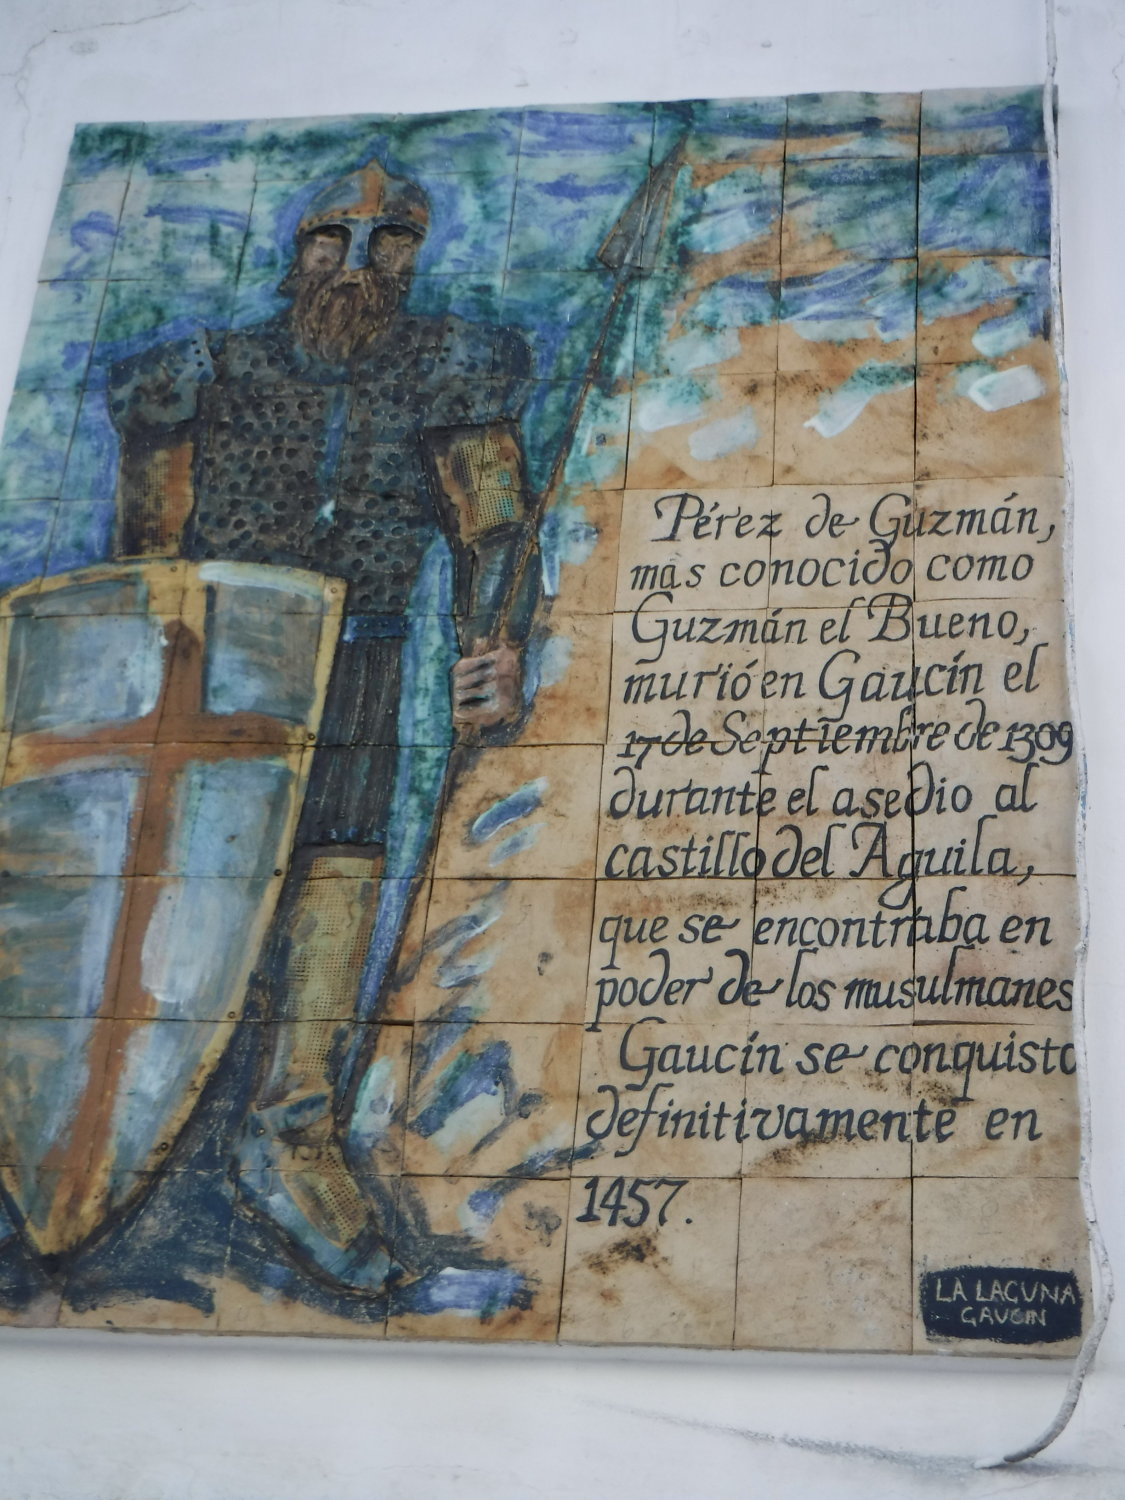 Pérez de Guzmán,
más conocido como
Guzmán el Bueno,
murió en Gaucín el
17 de Septiembre de 1309
durante el asedio al
castillo del Aguila,
que se encontraba en
poder de los musulmanes
Gaucín se conquistó
definitivamente en
1457.
LA LAGUNA
GAUCIN